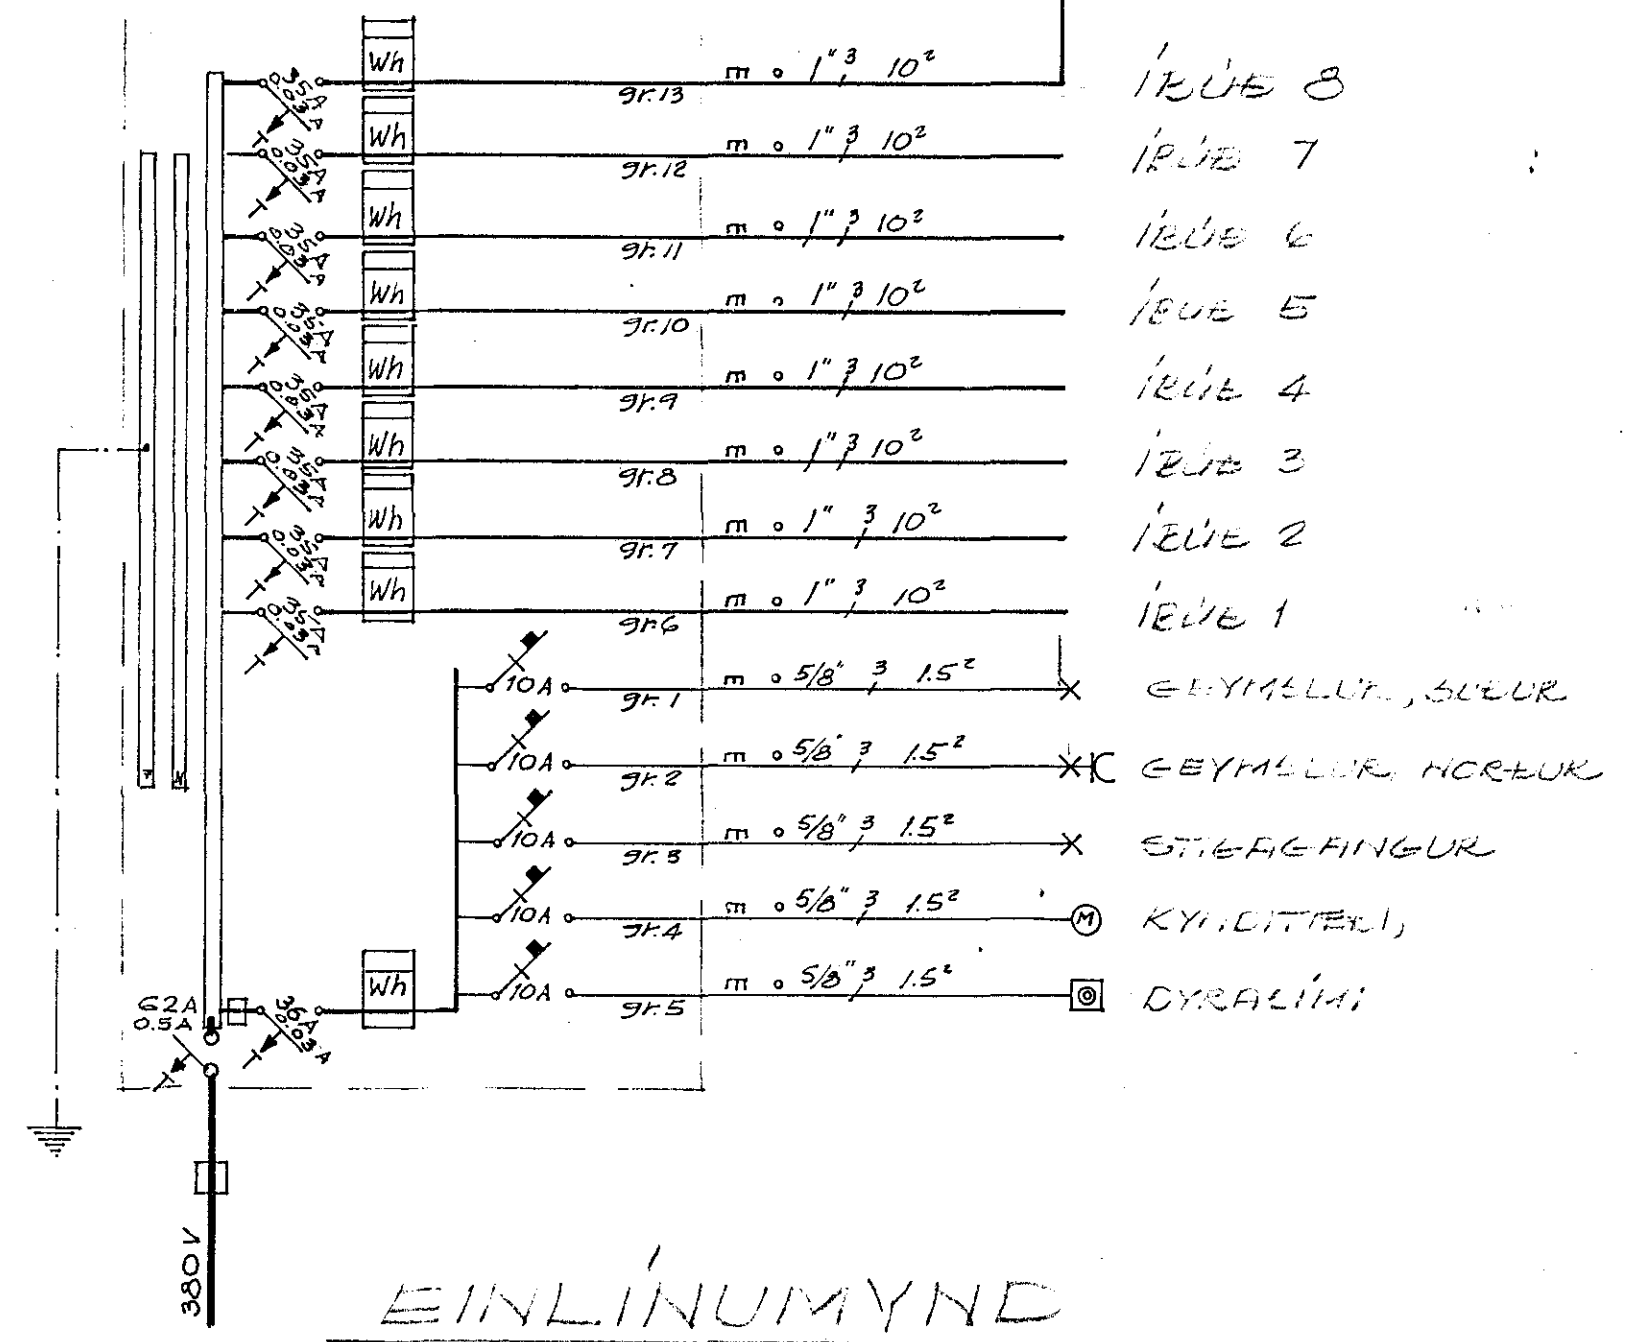 Wh 35A 0.03A gr.13 m o 1" 3 10² ÍBÚÐ 8
Wh 35A 0.03A gr.12 m o 1" 3 10² ÍBÚÐ 7
Wh 35A 0.03A gr.11 m o 1" 3 10² ÍBÚÐ 6
Wh 35A 0.03A gr.10 m o 1" 3 10² ÍBÚÐ 5
Wh 35A 0.03A gr.9 m o 1" 3 10² ÍBÚÐ 4
Wh 35A 0.03A gr.8 m o 1" 3 10² ÍBÚÐ 3
Wh 35A 0.03A gr.7 m o 1" 3 10² ÍBÚÐ 2
Wh 35A 0.03A gr.6 m o 1" 3 10² ÍBÚÐ 1
10A gr.1 m o 5/8" 3 1.5² GEYMSLUR, SUÐUR
10A gr.2 m o 5/8" 3 1.5² GEYMSLUR, NORÐUR
10A gr.3 m o 5/8" 3 1.5² STIGAGANGUR
10A gr.4 m o 5/8" 3 1.5² M KYNDITÆKI,
Wh 10A gr.5 m o 5/8" 3 1.5² DYRASÍMI
62A
0.5A
0.03A
N
380V
EINLÍNUMYND